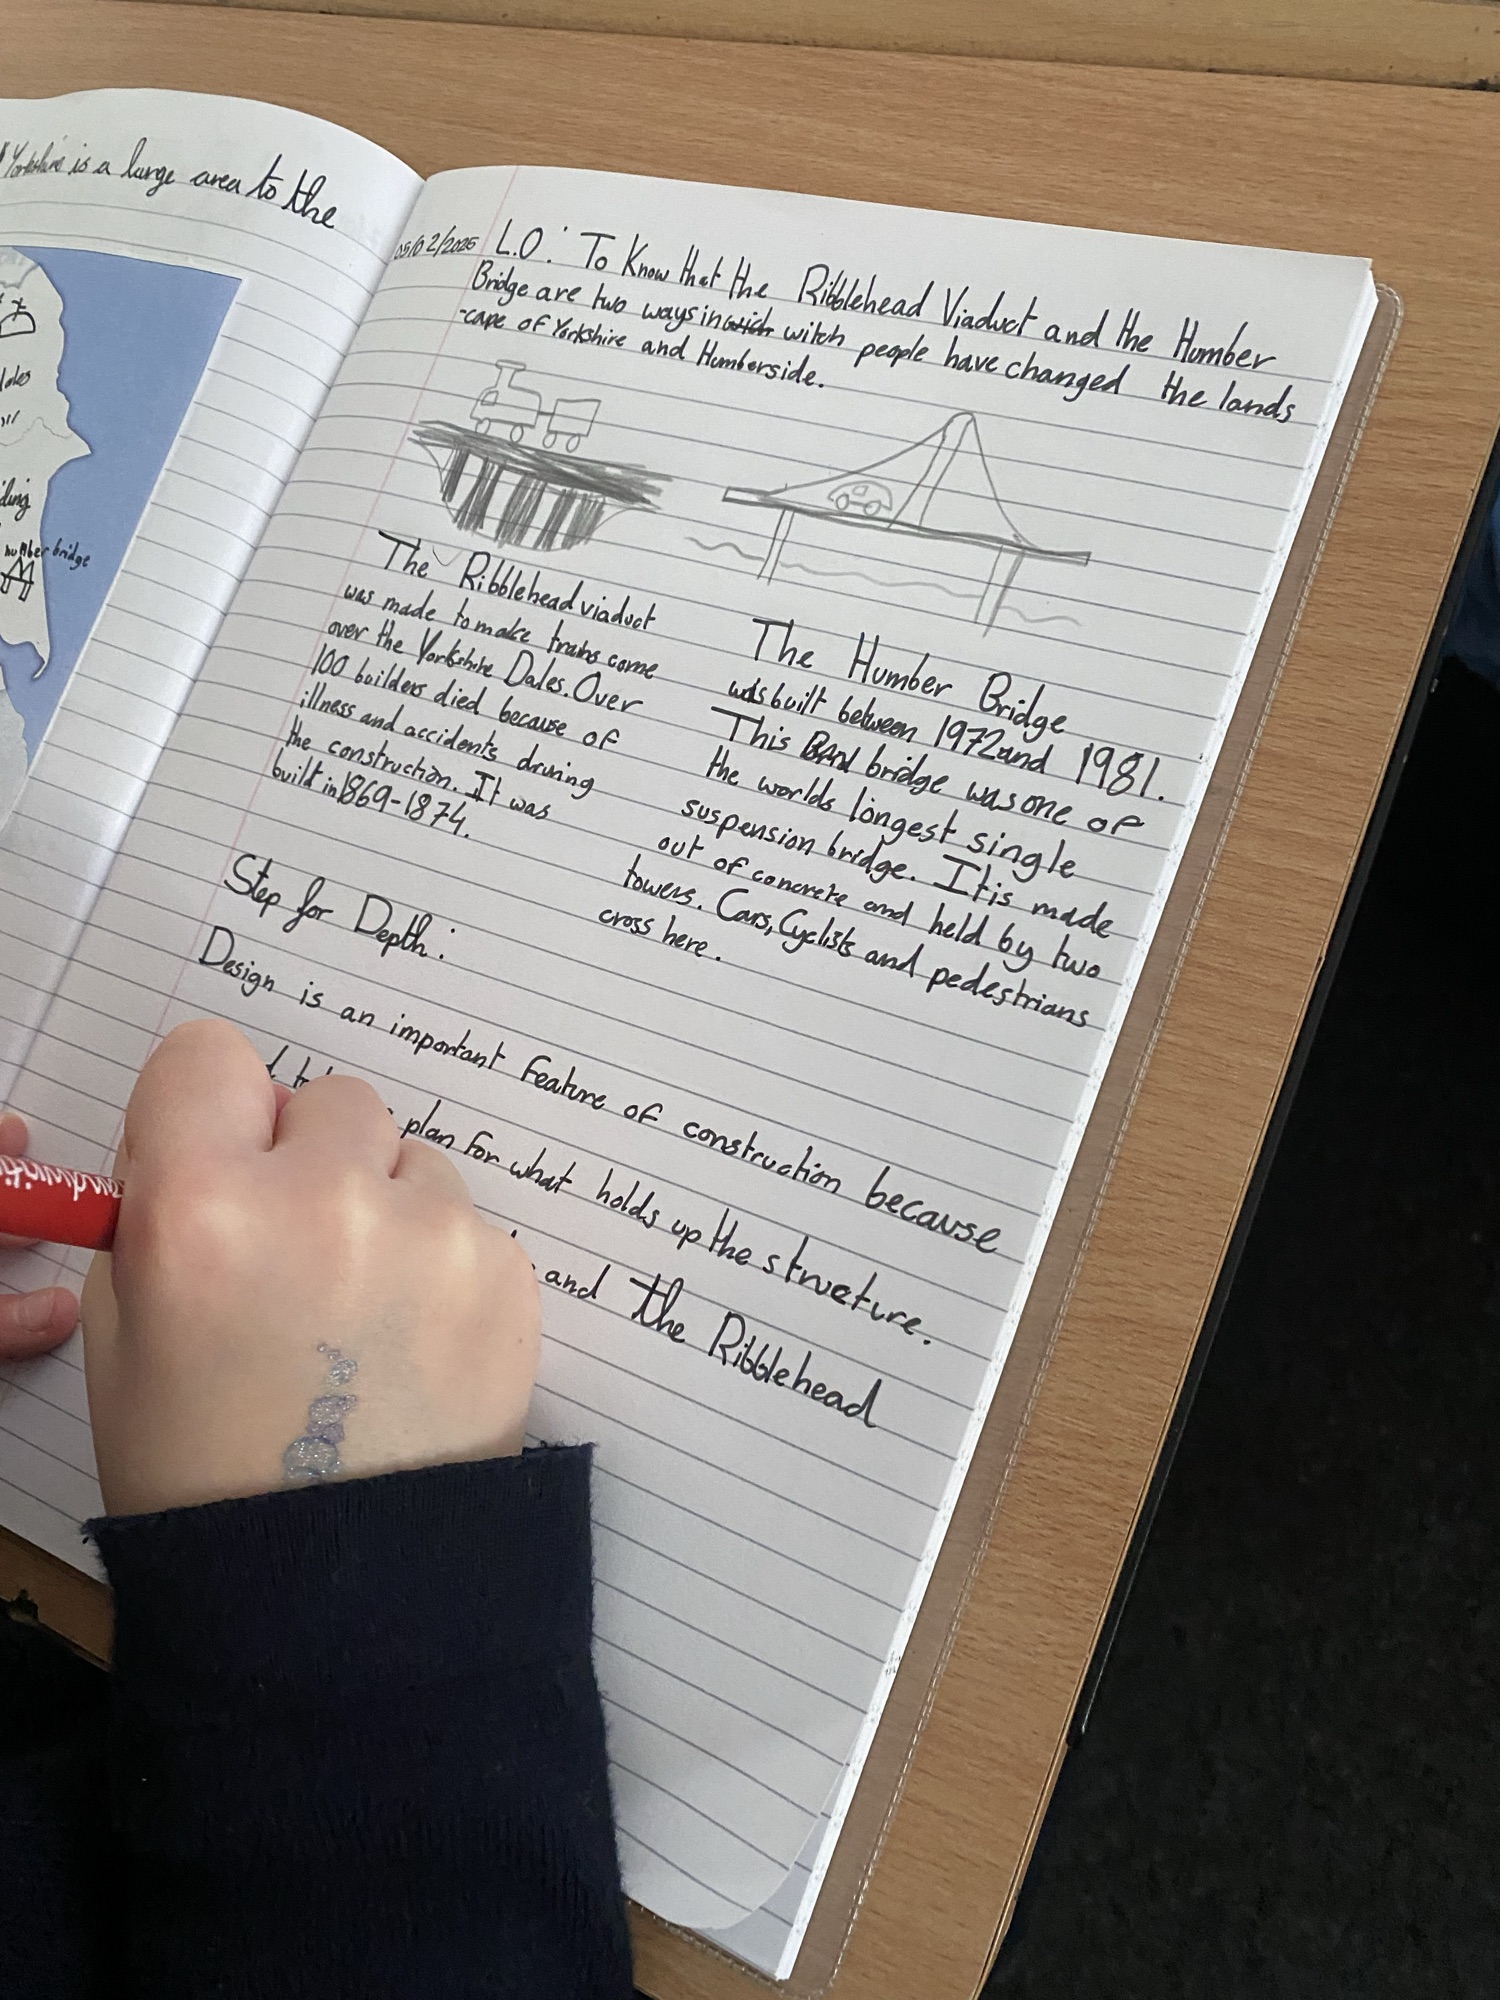 Yorkshire is a large area to the
humber bridge
05/02/2025 L.O: To Know that the Ribblehead Viaduct and the Humber
Bridge are two ways in which witch people have changed the lands
-cape of Yorkshire and Humberside.
The Ribblehead viaduct
was made to make trains come
over the Yorkshire Dales. Over
100 builders died because of
illness and accidents druring
the construction. It was
built in 1869-1874.
The Humber Bridge
was built between 1972 and 1981.
This bridge was one of
the worlds longest single
suspension bridge. It is made
out of concrete and held by two
towers. Cars, Cyclists and pedestrians
cross here.
Step for Depth:
Design is an important feature of construction because
plan for what holds up the structure.
and the Ribblehead